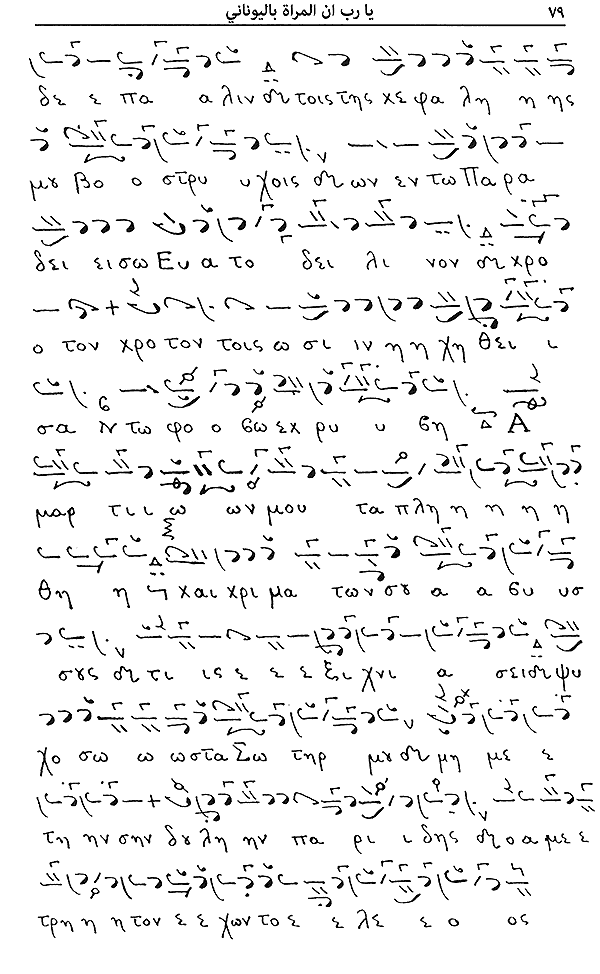 يا رب ان المراة باليوناني ٧٩
δε ε πα α λιν ϗ τοις της κε φα λη η ης
μȣ βο ο στρυ υ χοις ϗ ων εν τω Πα ρα
δει ει σω Ευ α το δει λι νον ϗ χρο
ο τον χρο τον τοις ω σι ιν η η χη θει ι
σα τω φο ο βω εκ ρυ υ βη Α
μαρ τι ι ω ων μου τα πλη η η η η
θη η ϗ και κρι μα των σȣ α α βυ υσ
σȣς ϗ τι ις ε ε ε ξι χνι α σει ϗ ψυ
χο σω ω ω στα Σω τηρ μȣ ϗ μη με ε
τη ην σην δȣ λη ην πα ρι ι δης ϗ ο α με ε
τρη η η τον ε ε χων το ε ε λε ε ο ος